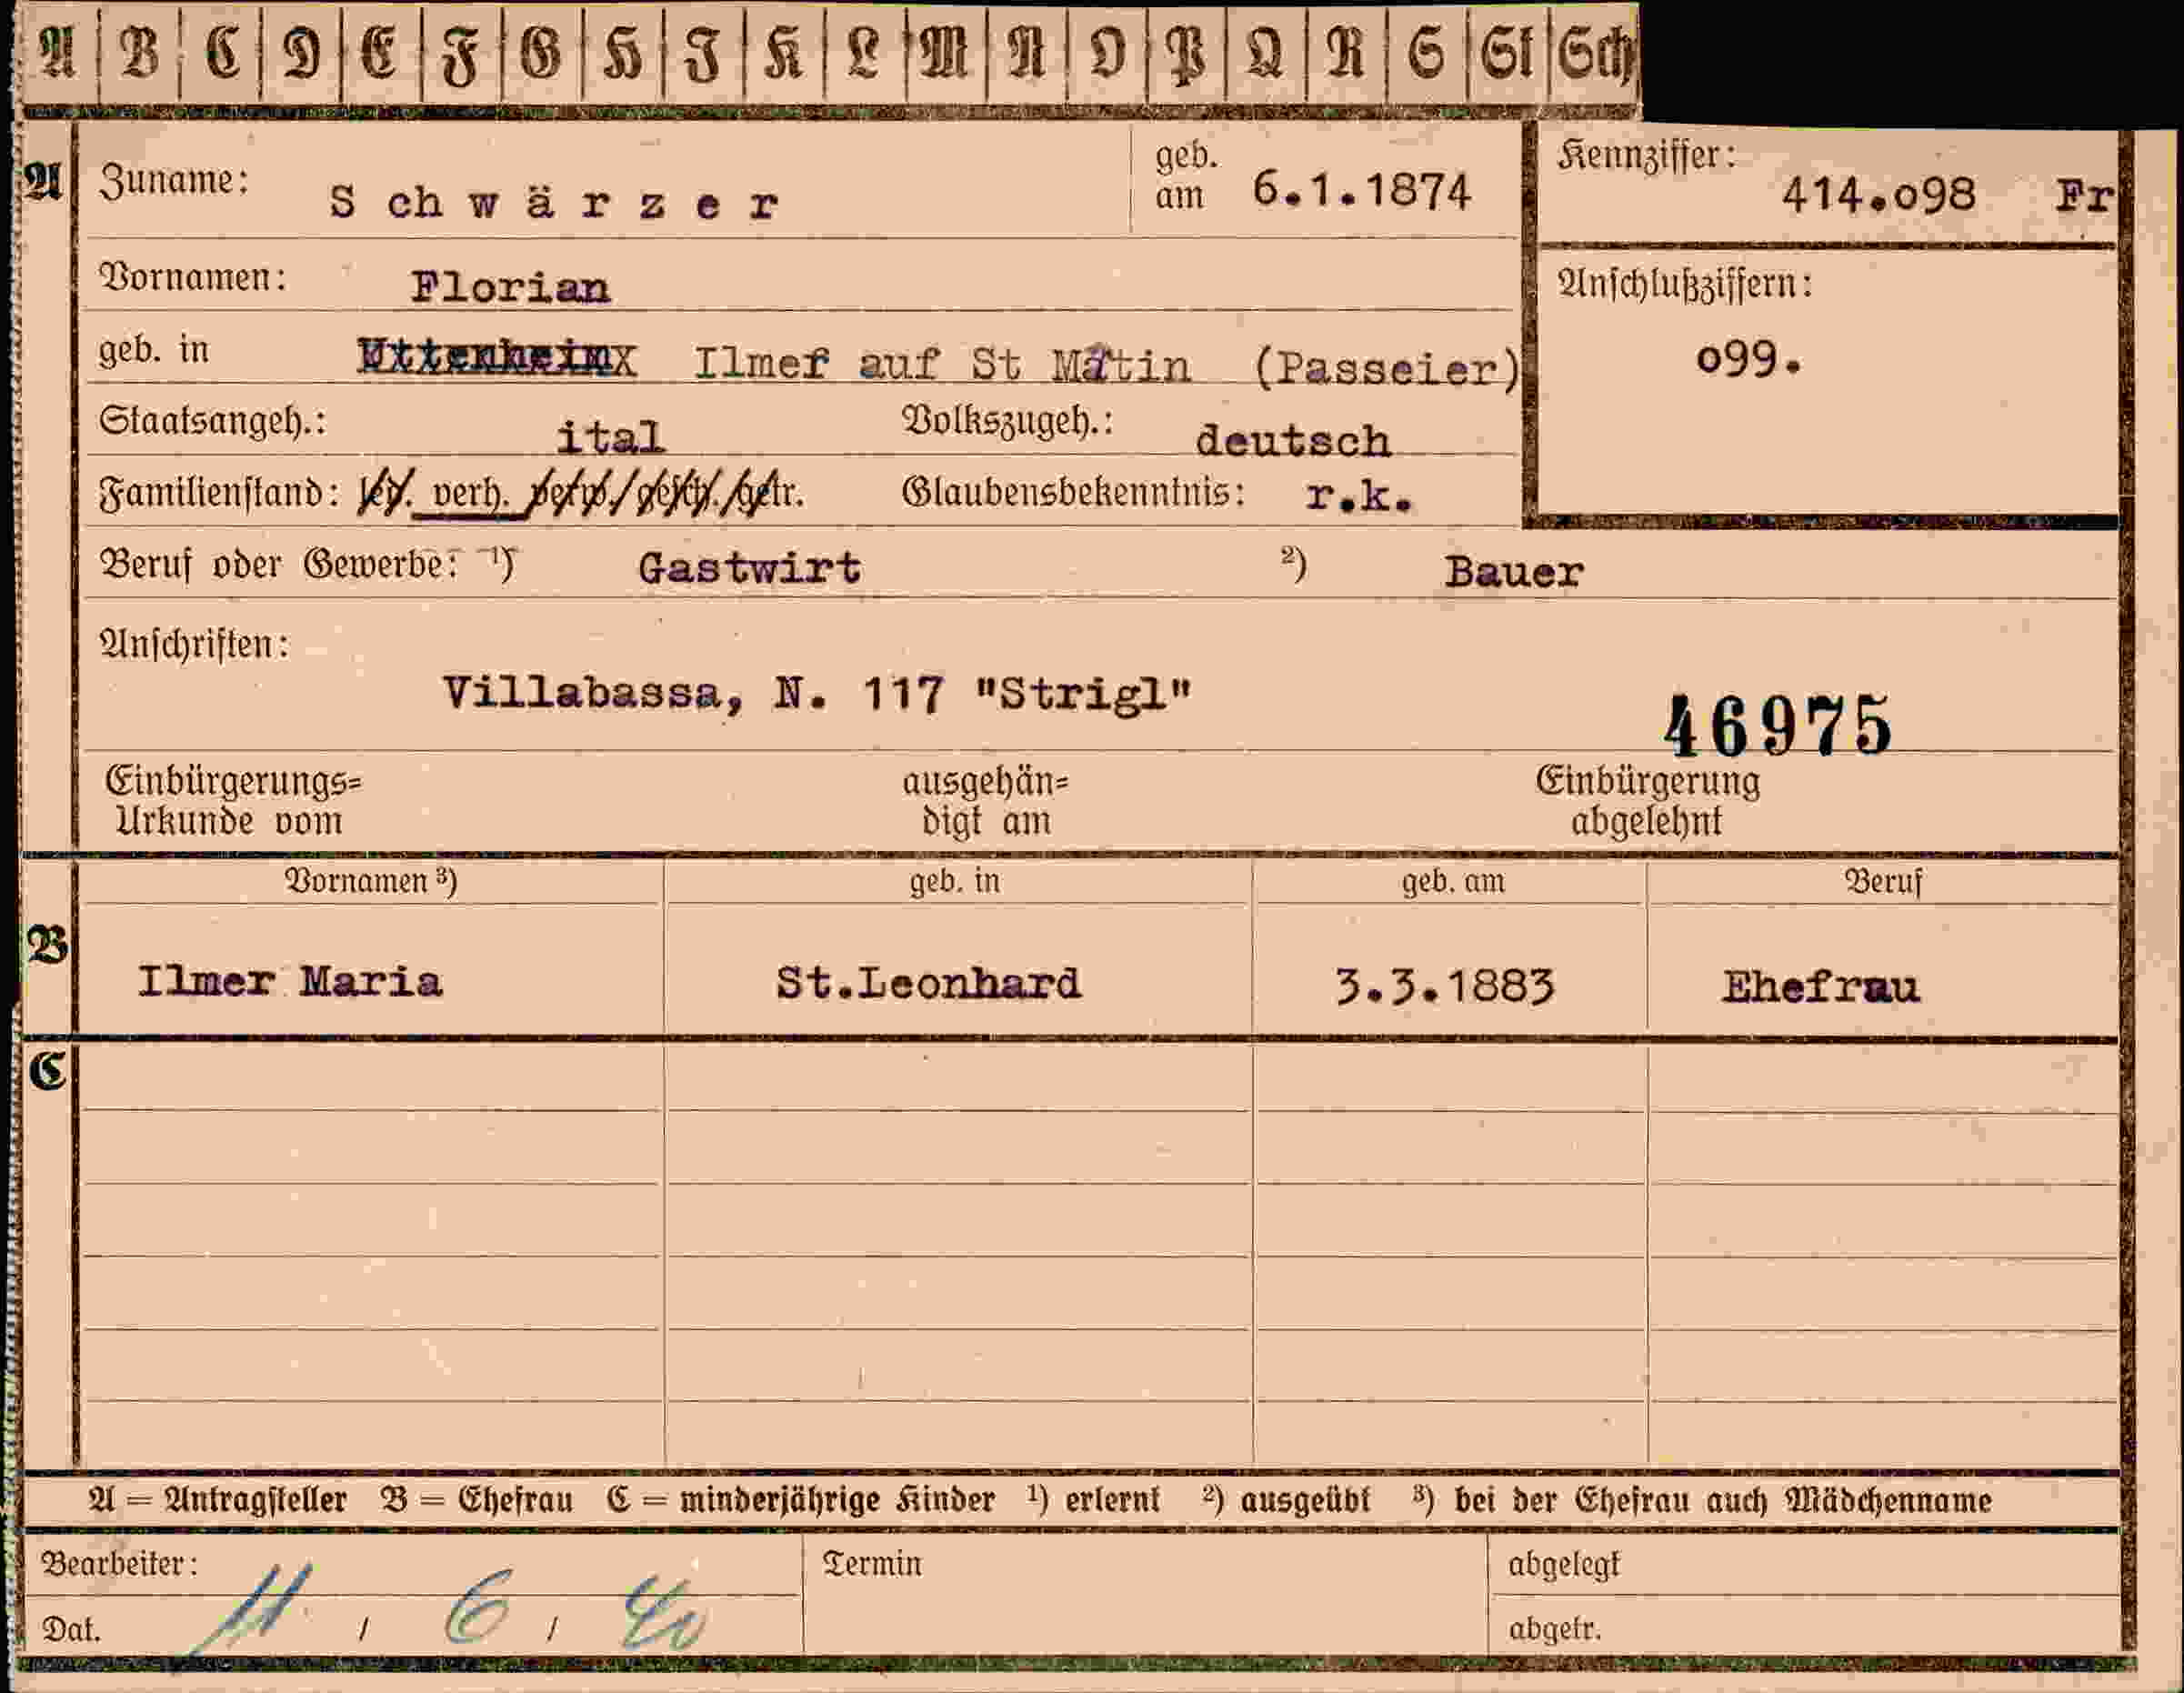 A B C D E F G H I K L M N O P Q R S St Sch
A Zuname: Schwärzer geb. am 6.1.1874 Kennziffer: 414.o98 Fr
Vornamen: Florian Anschlußziffern:
geb. in Uttenheimx Ilmer auf St Matin (Passeier) o99.
Staatsangeh.: ital Volkszugeh.: deutsch
Familienstand: led. verh. verw./gesch./getr. Glaubensbekenntnis: r.k.
Beruf oder Gewerbe: ¹) Gastwirt ²) Bauer
Anschriften:
Villabassa, N. 117 "Strigl" 46975
Einbürgerungs= ausgehän= Einbürgerung
Urkunde vom digt am abgelehnt
Vornamen ³) geb. in geb. am Beruf
B
Ilmer Maria St.Leonhard 3.3.1883 Ehefrau
C
A = Antragsteller B = Ehefrau C = minderjährige Kinder ¹) erlernt ²) ausgeübt ³) bei der Ehefrau auch Mädchenname
Bearbeiter: Termin abgelegt
Dat. 11 / 6 / 40 abgetr.